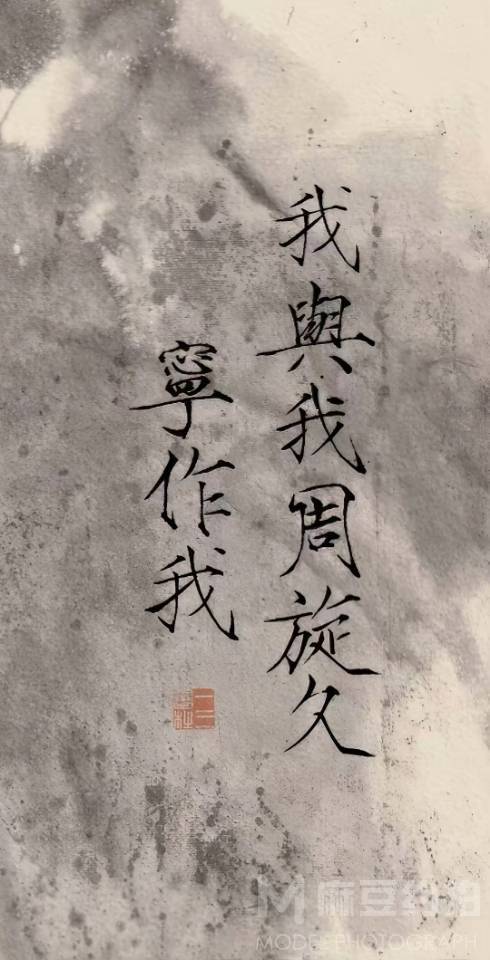 我與我周旋久
寧作我
麻豆约拍
MODEL PHOTOGRAPH